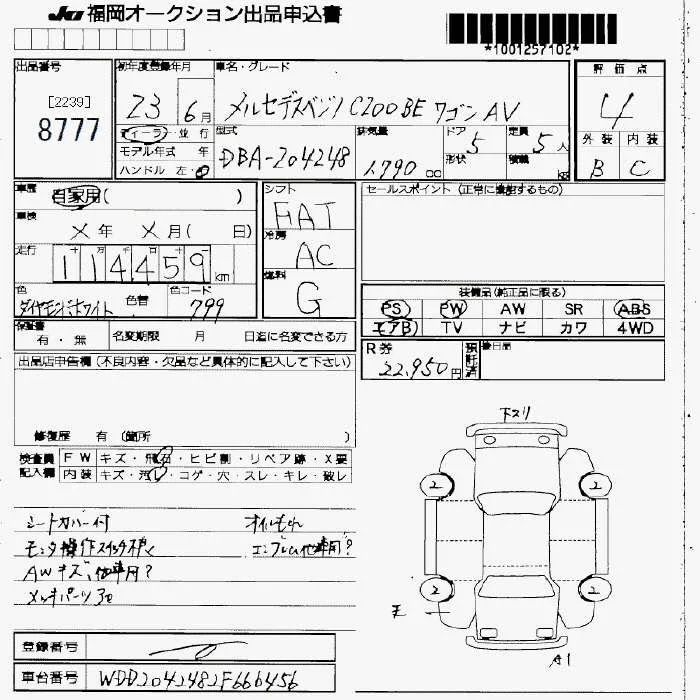 JU 福岡オークション出品申込書
*1001257102*
出品番号
[2239]
8777
初年度登録年月
23 6月
ディーラー・並行
モデル年式 年
ハンドル 左・右
車名・グレード
メルセデスベンツ C200BE ワゴン AV
型式
DBA-204248
排気量
1,790 cc
ドア 5
形状
定員 5人
積載 kg
評価点
4
外装 内装
B C
車歴 自家用( )
車検 X年 X月( 日)
走行 十万千百十
114459 km
色 ダイヤモンドホワイト
色替
色コード 799
シフト FAT
冷房 AC
燃料 G
セールスポイント (正常に機能するもの)
装備品(純正品に限る)
PS PW AW SR ABS
エアB TV ナビ カワ 4WD
保証書
有・無
名変期限 月 日迄に名変できる方
R券 22,950円
預託済
後日品
出品店申告欄(不良内容・欠品など具体的に記入して下さい)
修復歴 有(箇所 )
検査員記入欄
FW キズ・飛石・ヒビ割・リペア跡・X要
内装 キズ・汚レ・コゲ・穴・スレ・キレ・破レ
シートカバー付 オイルもれ
エンブレム他車用?
AWキズ、他車用?
下スリ
2 2
2 2
A1
登録番号
車台番号 WDD2042482F666456